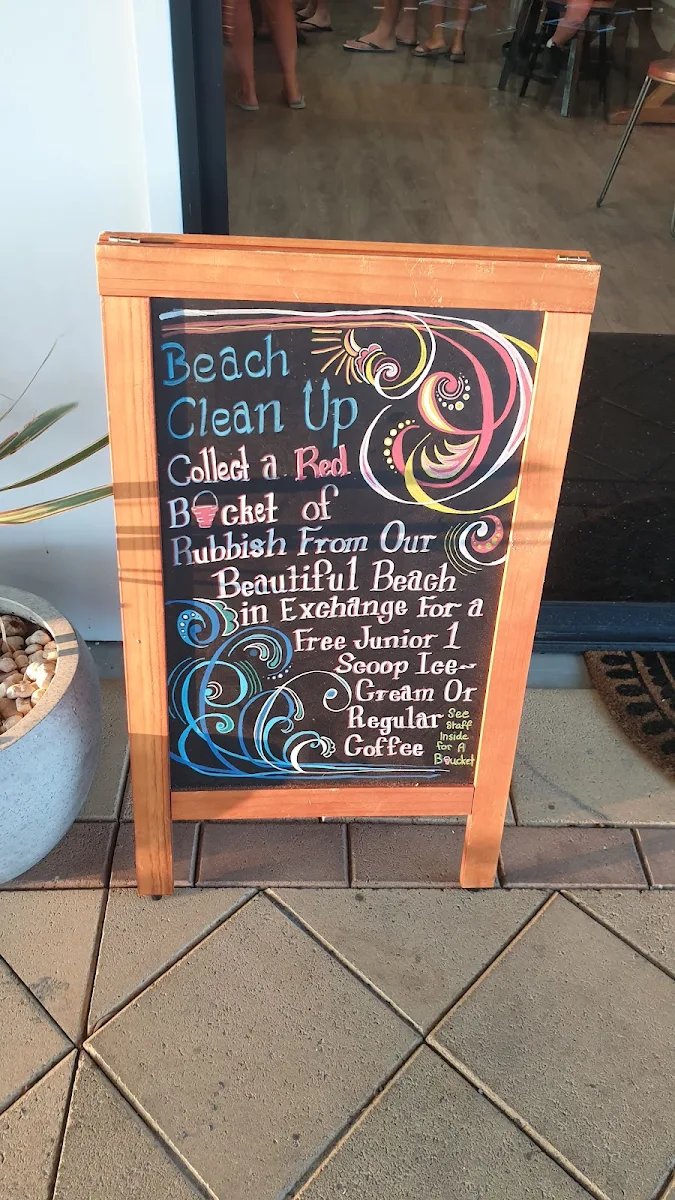 Beach
Clean Up
Collect a Red
Bucket of
Rubbish From Our
Beautiful Beach
in Exchange For a
Free Junior 1
Scoop Ice-
Cream Or
Regular
Coffee
See
Staff
Inside
for A
Boucket